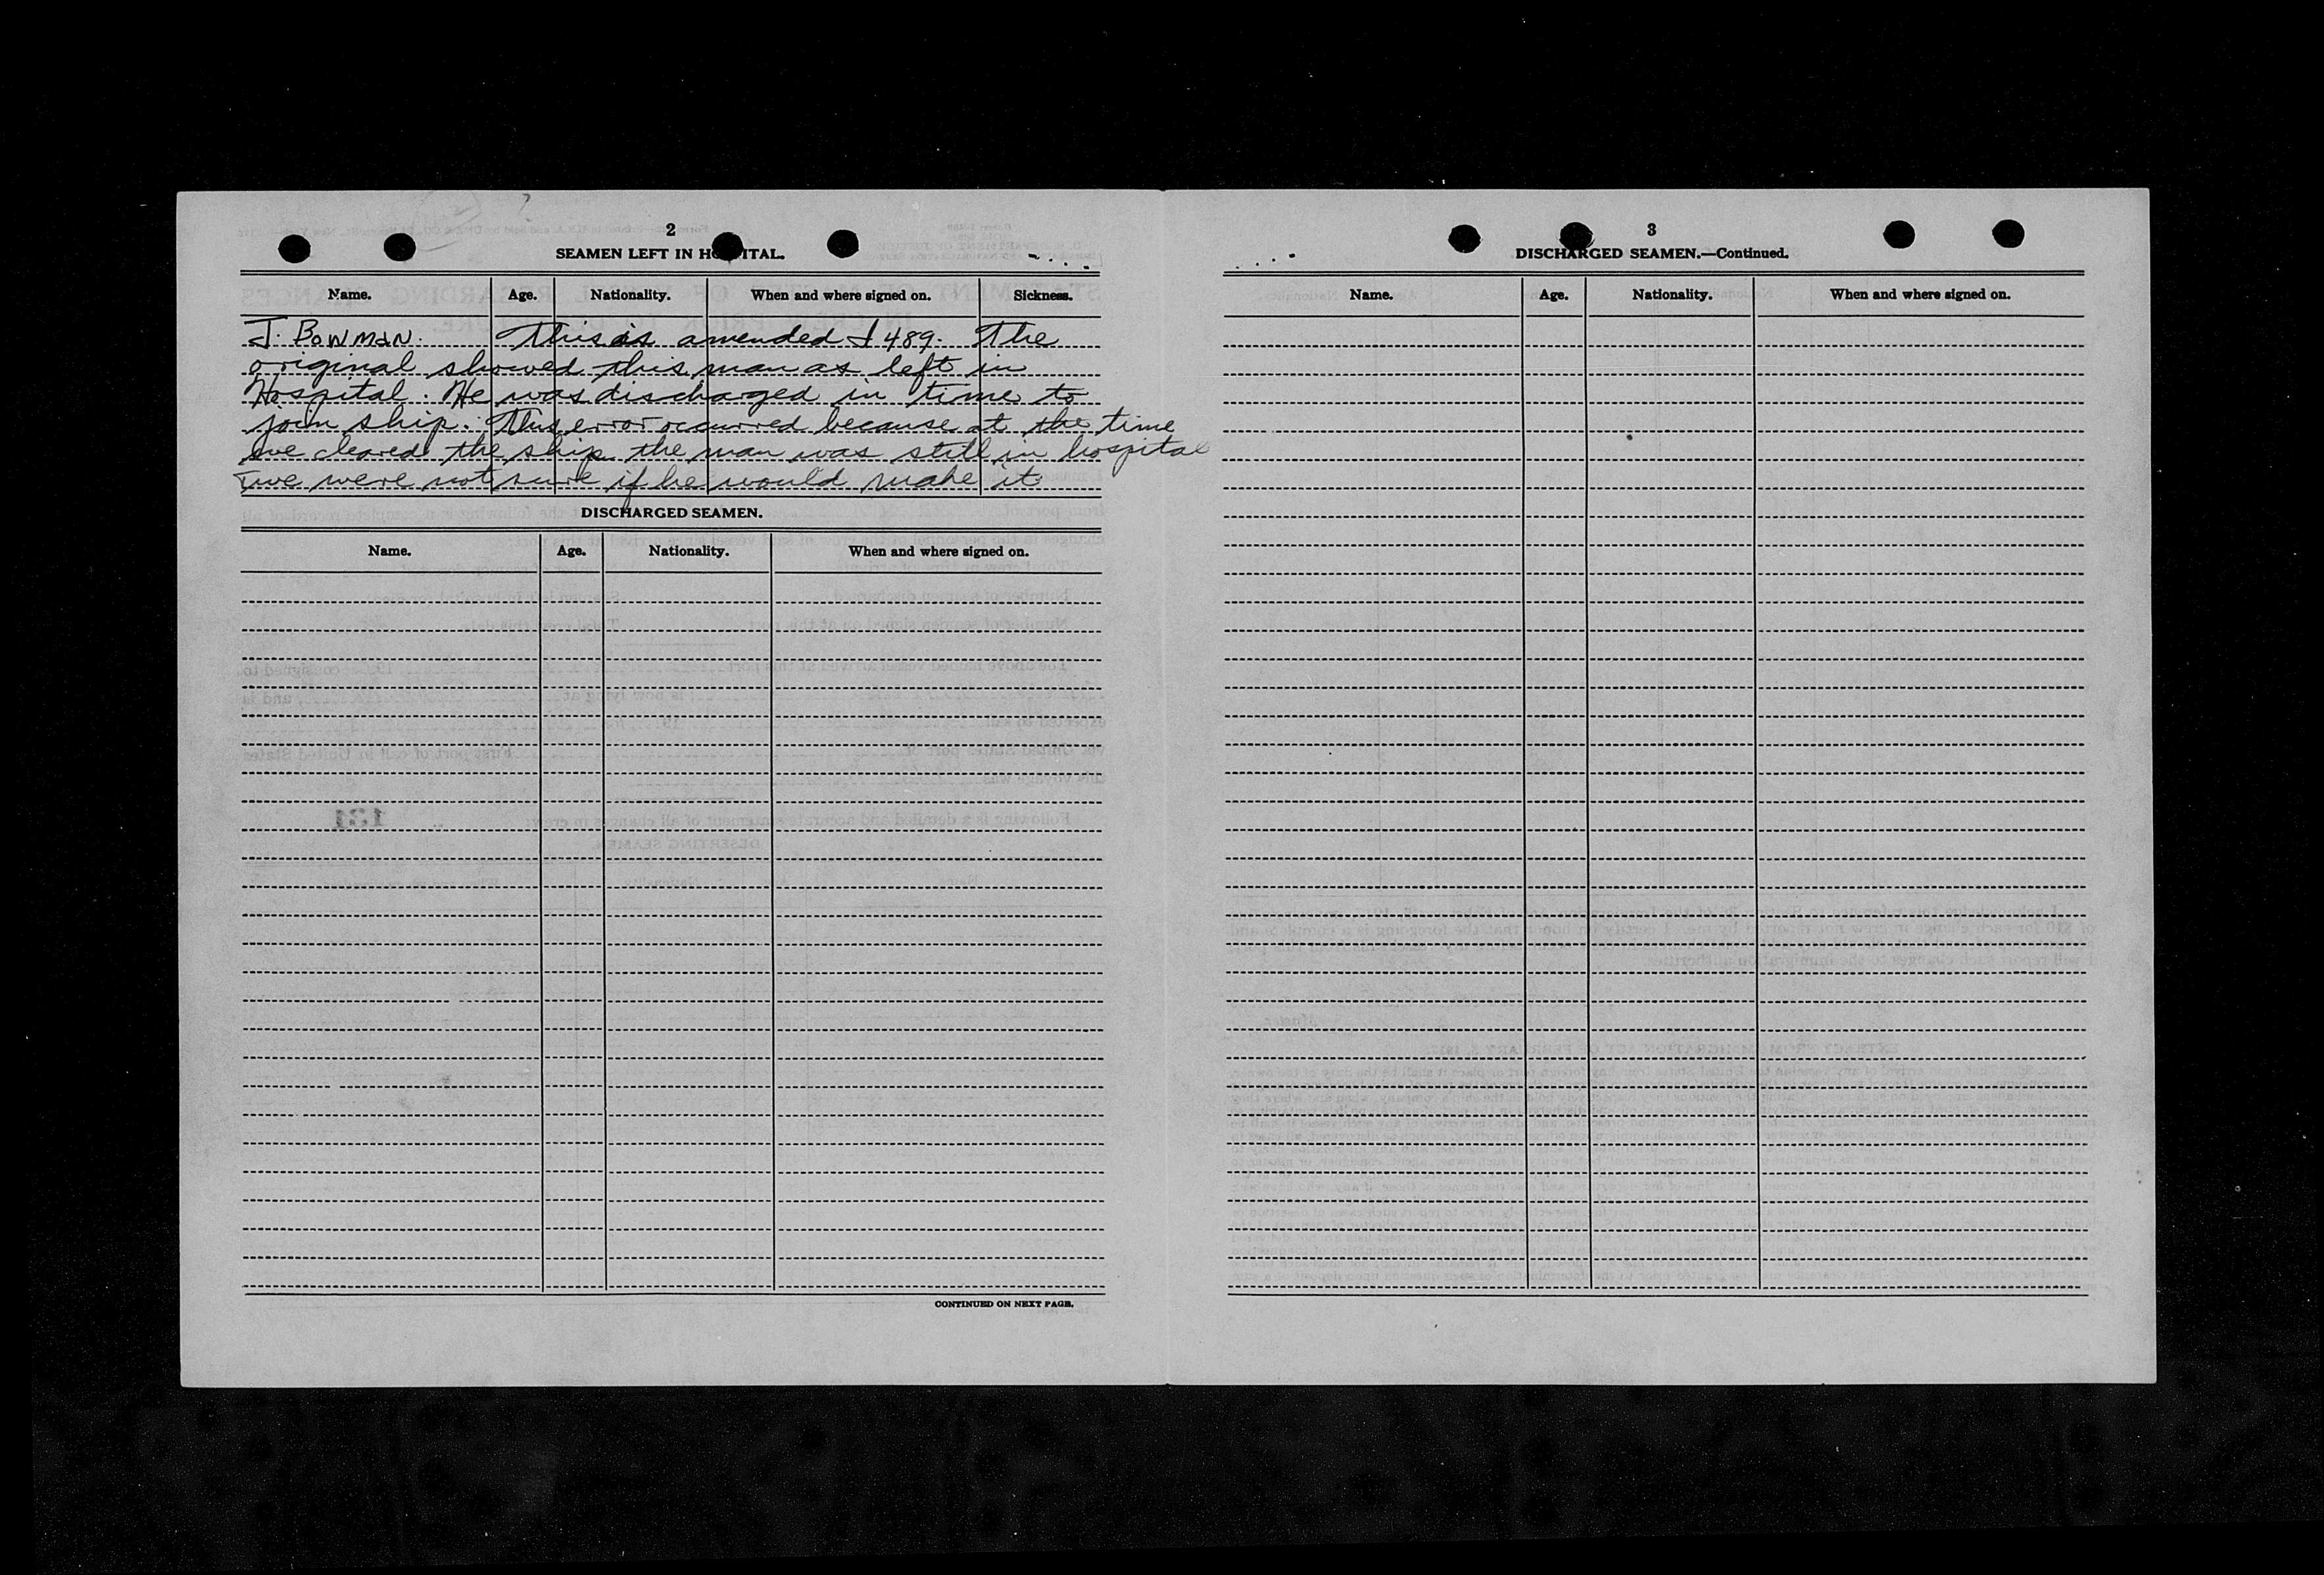 2
SEAMEN LEFT IN HOSPITAL.
Name. Age. Nationality. When and where signed on. Sickness.
J. Bowman. This is amended I 489. The
original showed this man as left in
Hospital. He was discharged in time to
join ship. This error occurred because at the time
we cleared the ship the man was still in hospital
we were not sure if he would make it
DISCHARGED SEAMEN.
Name. Age. Nationality. When and where signed on.
CONTINUED ON NEXT PAGE.
3
DISCHARGED SEAMEN.—Continued.
Name. Age. Nationality. When and where signed on.